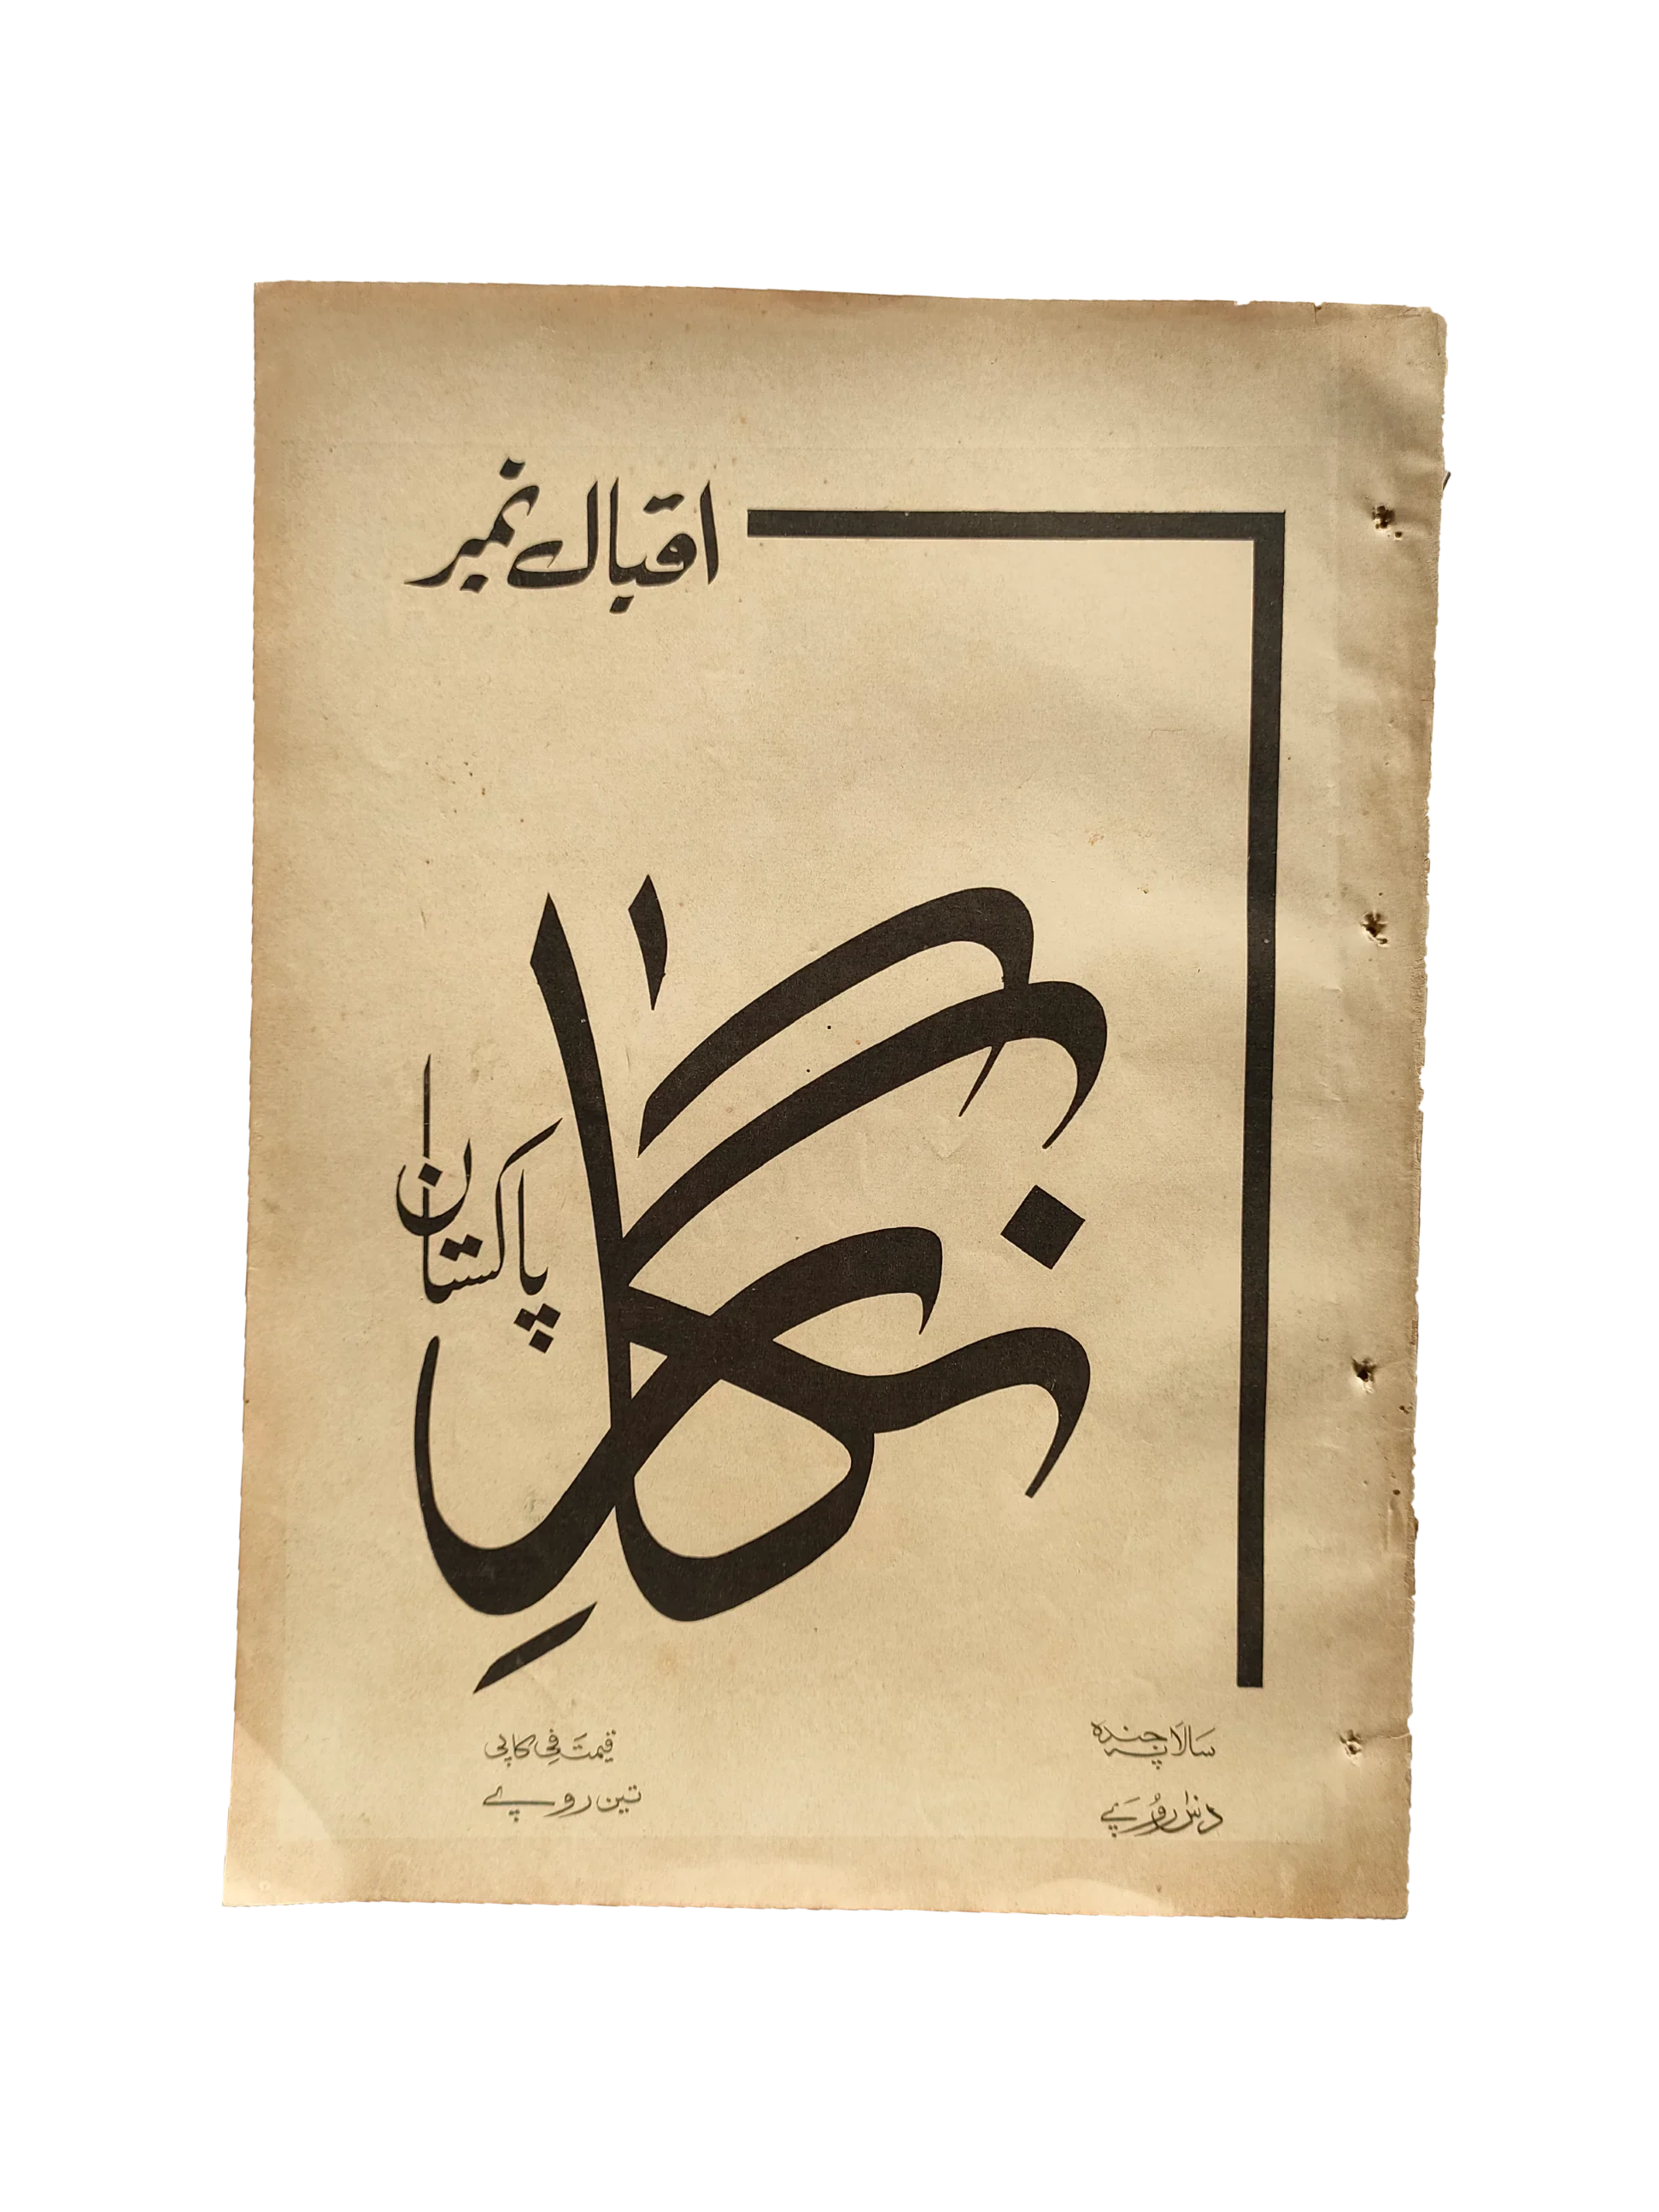 اقبال نمبر
نگارِ
پاکستان
سالانہ چندہ
دس روپے
قیمت فی کاپی
تین روپے